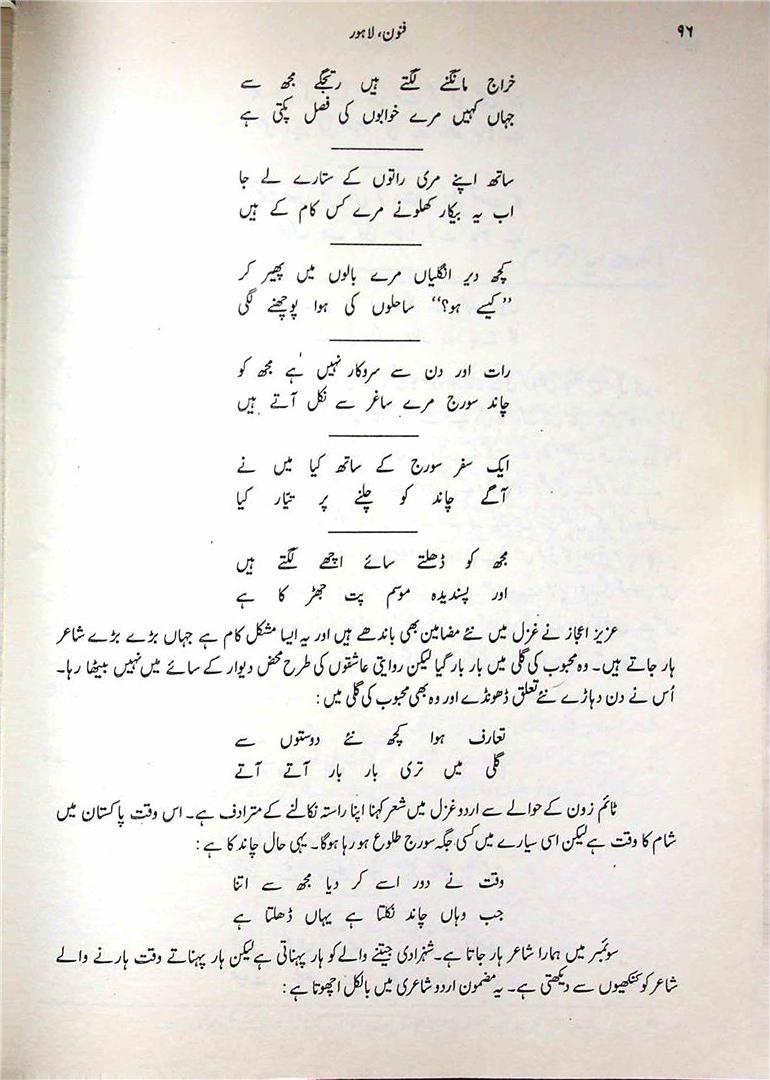 ۹۶
فنون، لاہور
خراج مانگنے لگتے ہیں رتجگے مجھ سے
جہاں کہیں مرے خوابوں کی فصل پکتی ہے
ساتھ اپنے مری راتوں کے ستارے لے جا
اب یہ بیکار کھلونے مرے کس کام کے ہیں
کچھ دیر انگلیاں مرے بالوں میں پھیر کر
”کیسے ہو؟“ ساحلوں کی ہوا پوچھنے لگی
رات اور دن سے سروکار نہیں ہے مجھ کو
چاند سورج مرے ساغر سے نکل آتے ہیں
ایک سفر سورج کے ساتھ کیا میں نے
آگے چاند کو چلنے پر تیّار کیا
مجھ کو ڈھلتے سائے اچھے لگتے ہیں
اور پسندیدہ موسم پت جھڑ کا ہے
عزیز اعجاز نے غزل میں نئے مضامین بھی باندھے ہیں اور یہ ایسا مشکل کام ہے جہاں بڑے بڑے شاعر
ہار جاتے ہیں۔ وہ محبوب کی گلی میں بار بار گیا لیکن روایتی عاشقوں کی طرح محض دیوار کے سائے میں نہیں بیٹھا رہا۔
اُس نے دن دہاڑے نئے تعلق ڈھونڈے اور وہ بھی محبوب کی گلی میں:
تعارف ہوا کچھ نئے دوستوں سے
گلی میں تری بار بار آتے آتے
ٹائم زون کے حوالے سے اردو غزل میں شعر کہنا اپنا راستہ نکالنے کے مترادف ہے۔ اس وقت پاکستان میں
شام کا وقت ہے لیکن اسی سیارے میں کسی جگہ سورج طلوع ہو رہا ہوگا۔ یہی حال چاند کا ہے:
وقت نے دور اسے کر دیا مجھ سے اتنا
جب وہاں چاند نکلتا ہے یہاں ڈھلتا ہے
سوئمبر میں ہمارا شاعر ہار جاتا ہے۔ شہزادی جیتنے والے کو ہار پہناتی ہے لیکن ہار پہناتے وقت ہارنے والے
شاعر کو کنکھیوں سے دیکھتی ہے۔ یہ مضمون اردو شاعری میں بالکل اچھوتا ہے: